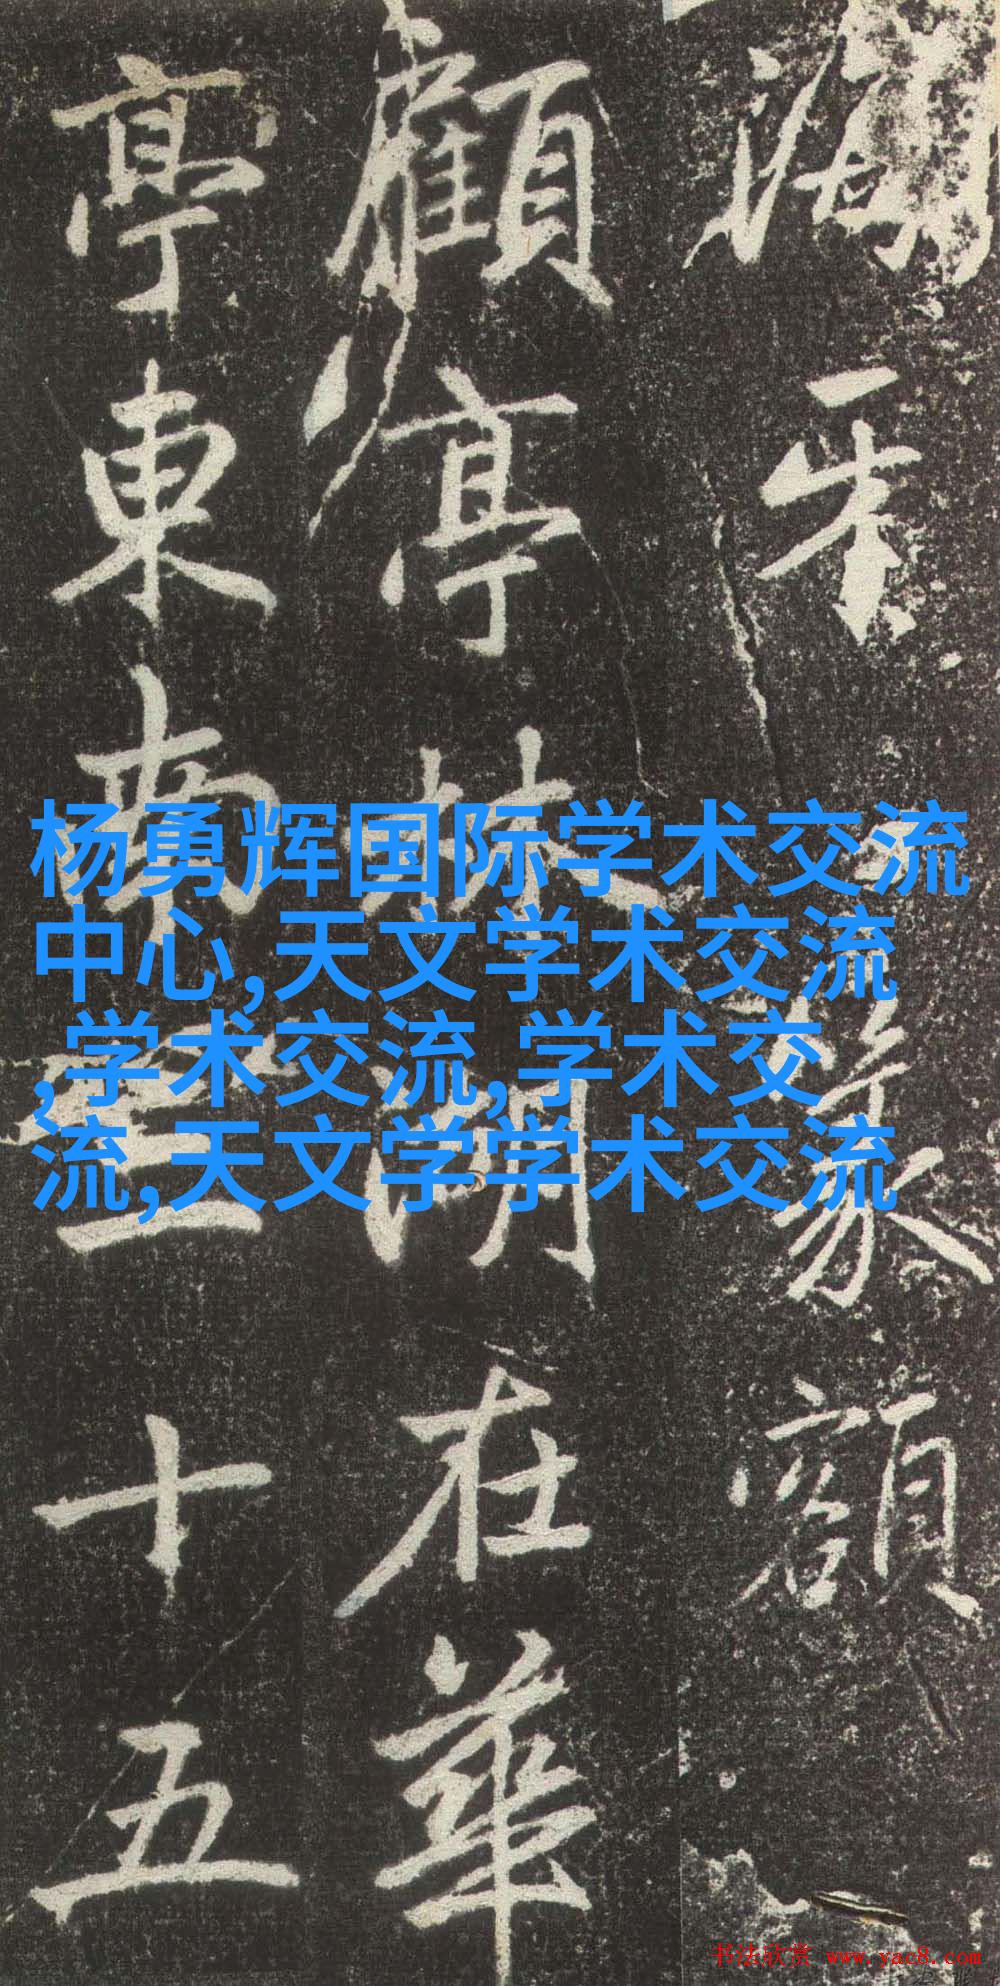 篆額
顧亭林湖在華
亭東南三十五
杨勇辉国际学术交流
中心,天文学术交流
,学术交流,学术交
流,天文学学术交流
书法欣赏 www.yac8.com